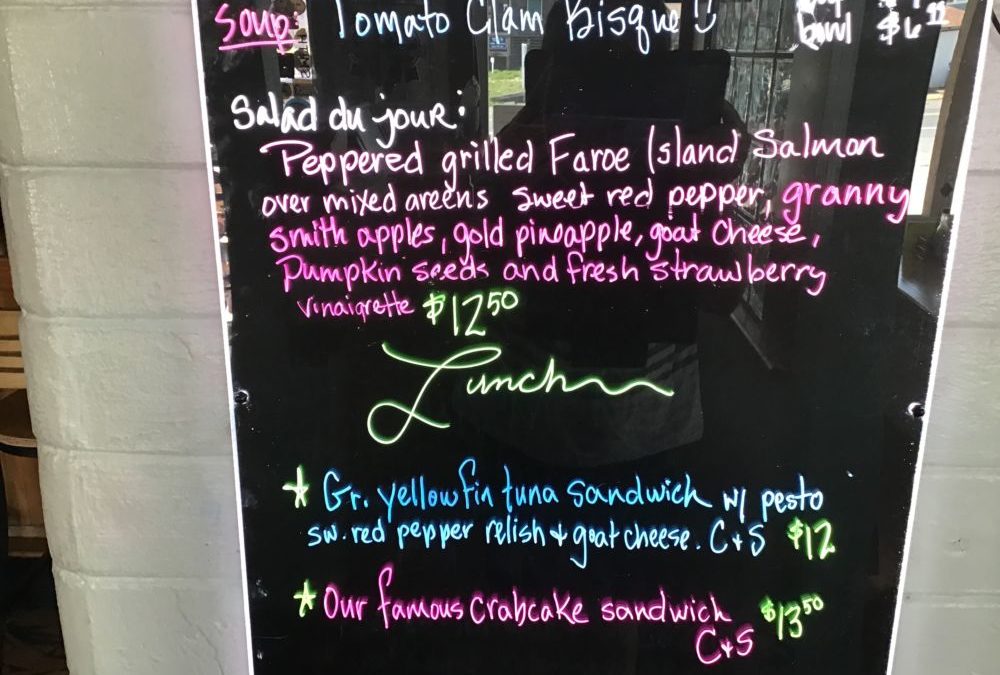 Soup: Tomato Clam Bisque
bowl $6
Salad du jour:
Peppered grilled Faroe Island Salmon
over mixed greens sweet red pepper, granny
smith apples, gold pineapple, goat cheese,
pumpkin seeds and fresh strawberry
vinaigrette $12 50
Lunch
Gr. yellowfin tuna sandwich w/ pesto
sw. red pepper relish + goat cheese. C+S $12
Our famous crabcake sandwich $13 50
C+S